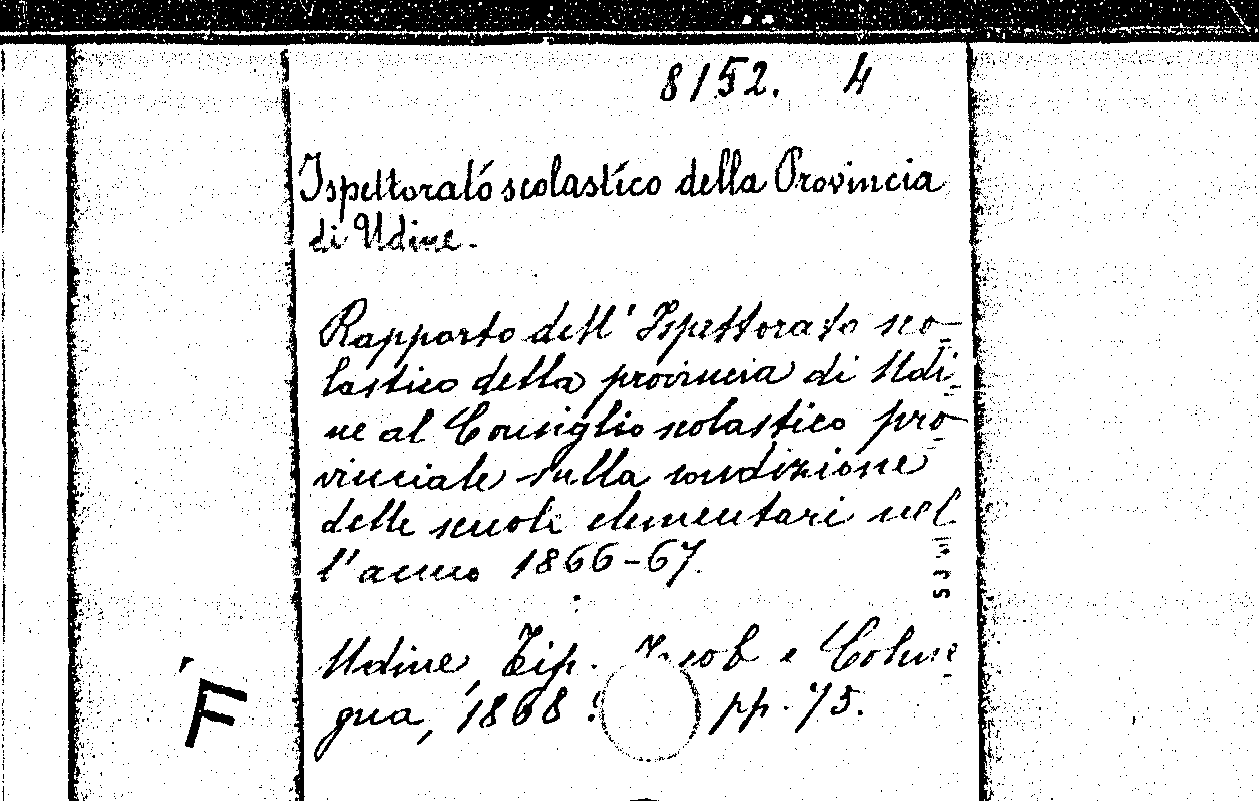 8152. 4
Ispettorato scolastico della Provincia
di Udine.
Rapporto dell'Ispettorato sco-
lastico della provincia di Udi-
ne al Consiglio scolastico pro-
vinciale sulla condizione
delle scuole elementari nel
l'anno 1866-67.
Udine, Tip. Jacob e Colme-
gna, 1868 pp. 75.
F